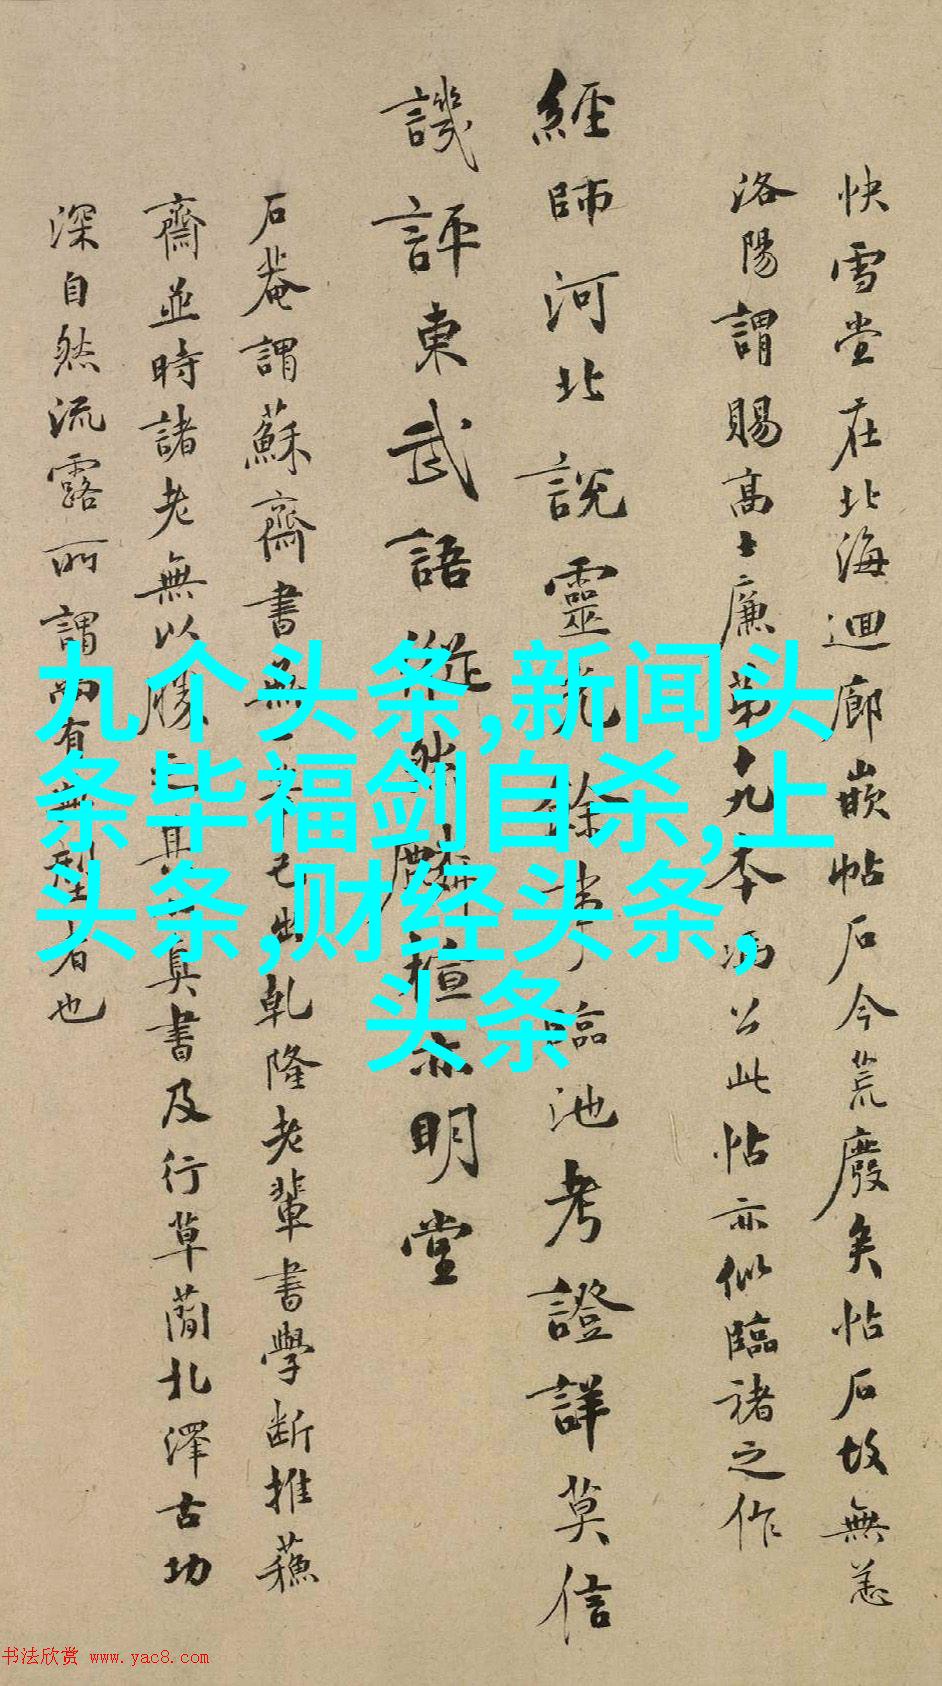 快雪堂在北海迴廊嵌帖石今荒廢矣帖石故無恙
洛陽謂賜高士廉第十九本馮公此帖亦似臨褚之作
經師河北說靈光餘事臨池考證詳莫信
譏評東武語縱然麟楦亦明堂
石菴謂蘇齋書無一筆已出乾隆老輩書學斷推蘇
齋並時諸老無以勝之其真書及行草蘭北澤古功
深自然流露所謂而有典型者也
九个头条,新闻头
条毕福剑自杀,上
头条,财经头条,
头条
书法欣赏 www.yac8.com